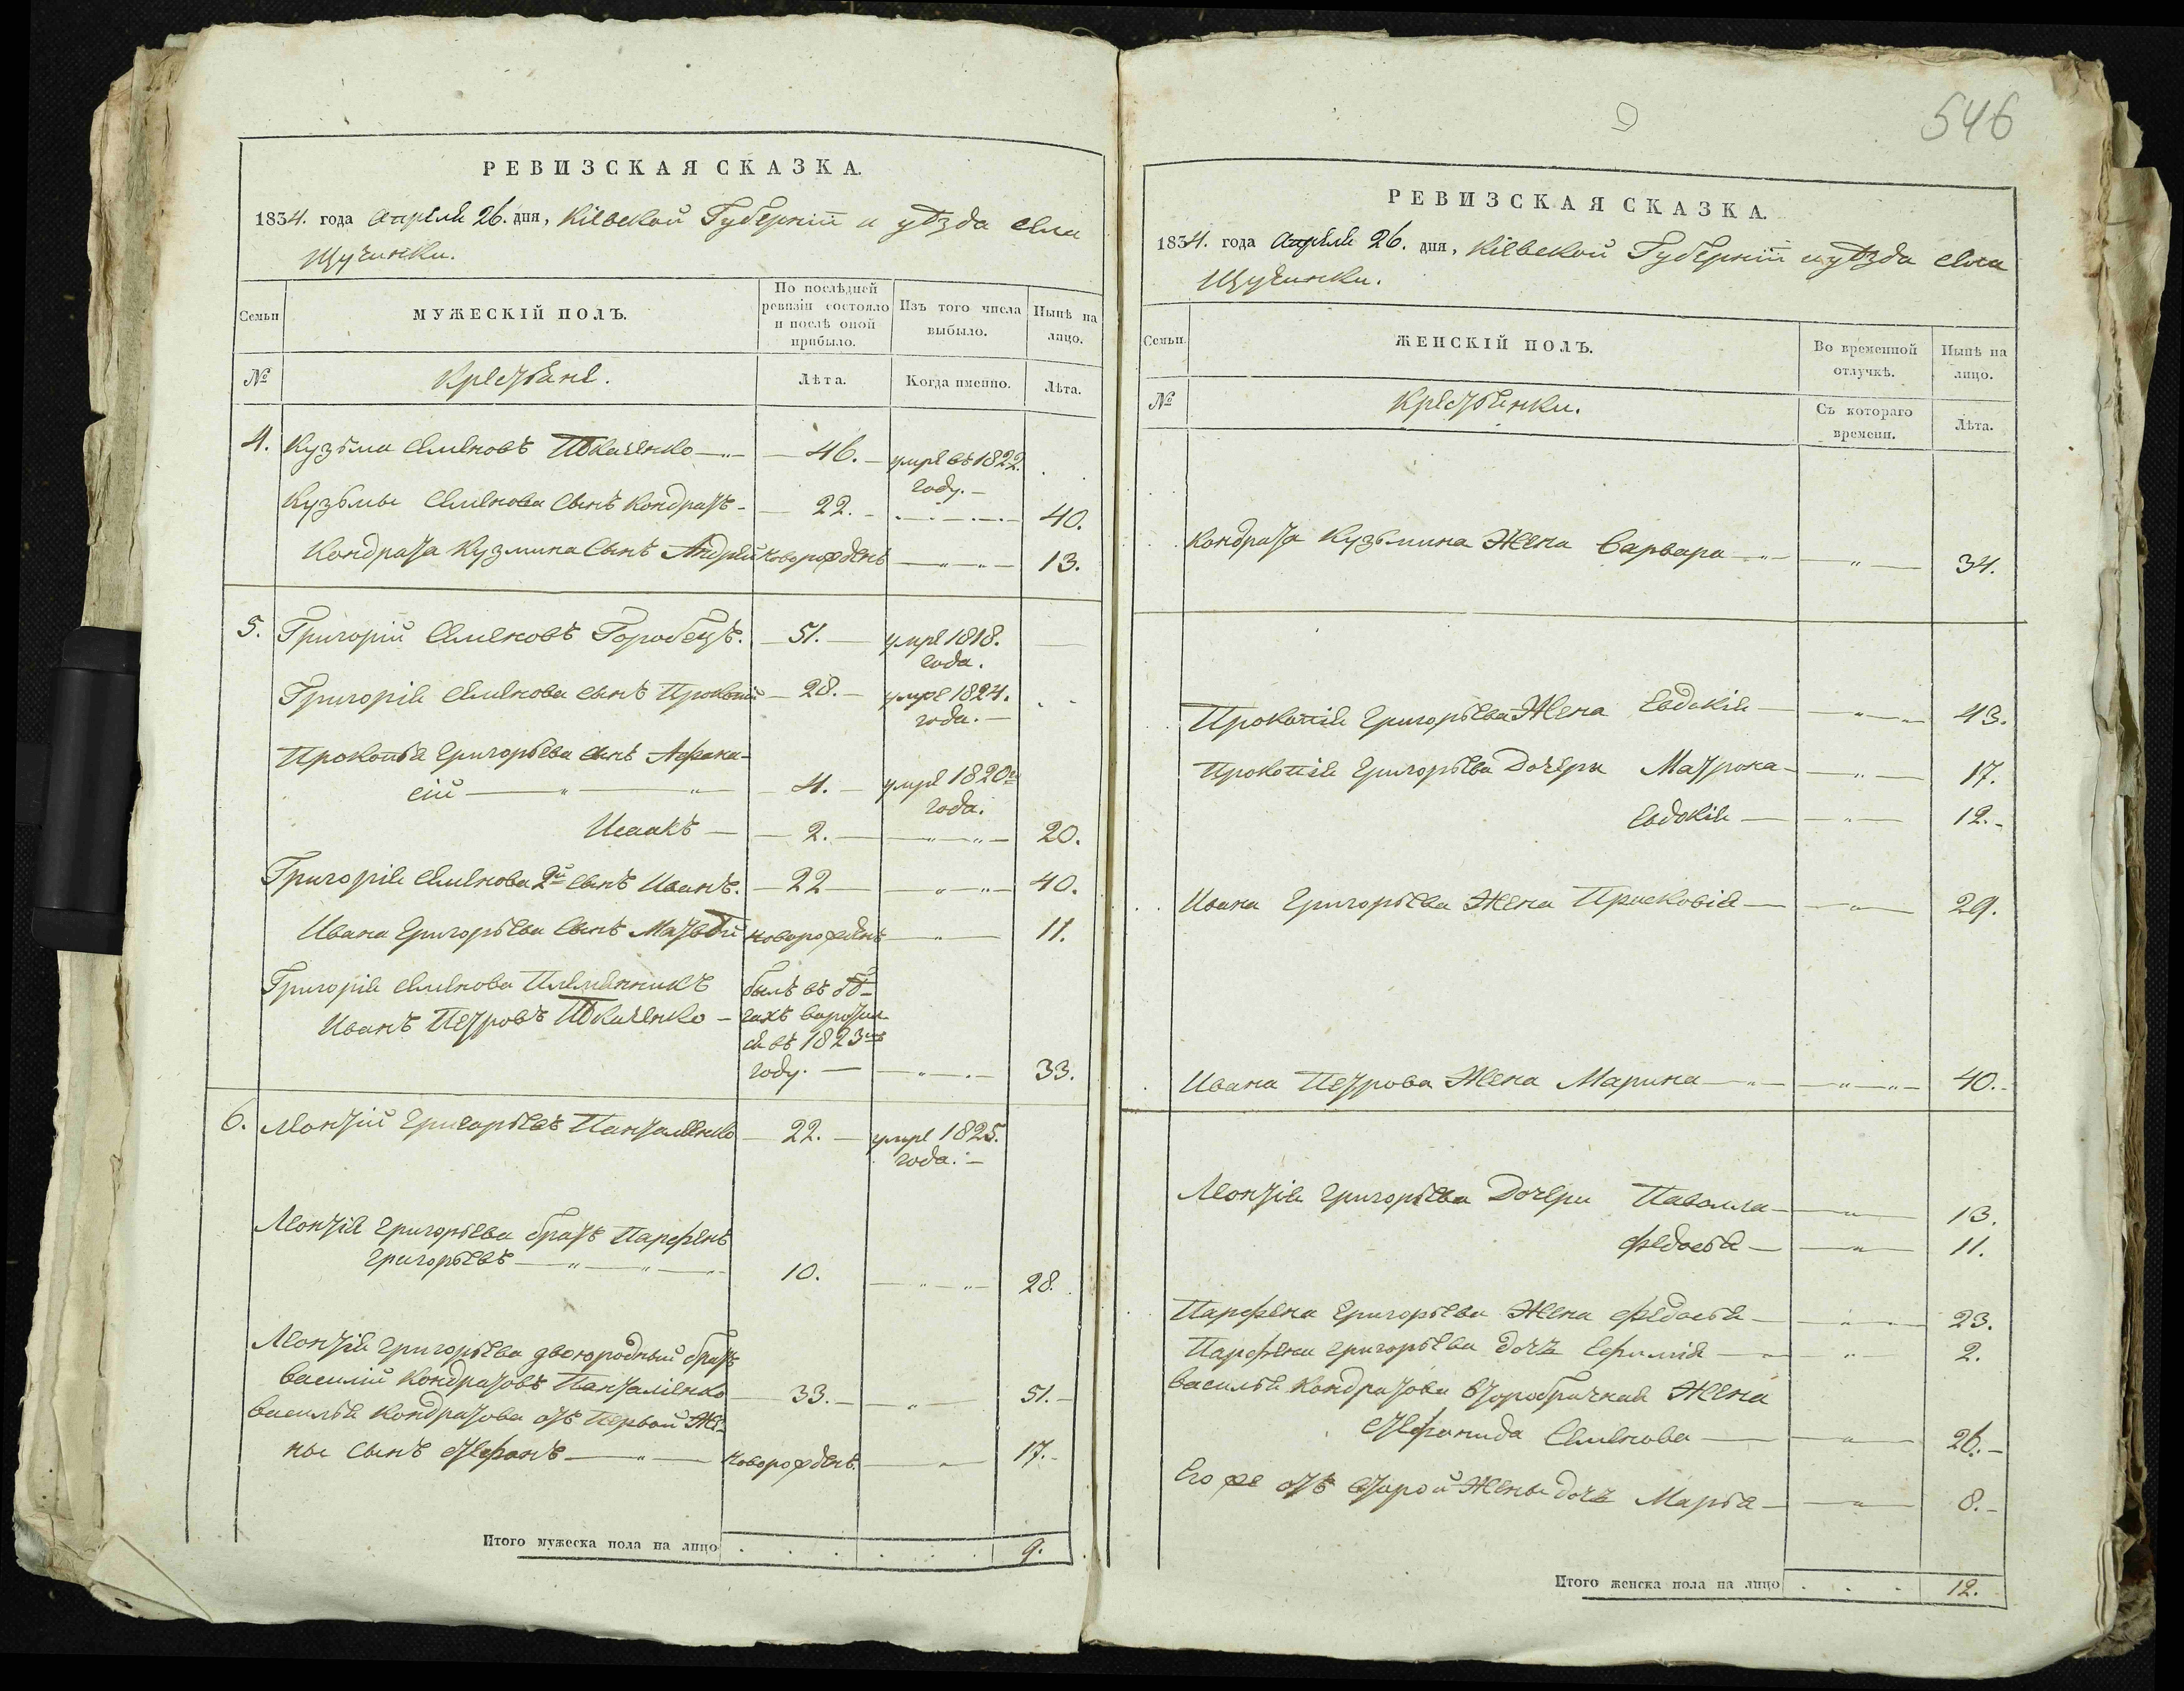 РЕВИЗСКАЯ СКАЗКА.
1834. года Апреля 26. дня, Кіевской Губерніи и уѣзда села
Щучинки.
Семьи
МУЖЕСКІЙ ПОЛЪ.
По послѣдней
ревизіи состояло
и послѣ оной
прибыло.
Изъ того числа
выбыло.
Нынѣ на
лицо.
№
Крестьяне.
Лѣта.
Когда именно.
Лѣта.
4. Кузьма Семеновъ Ткаченко — 46. — умре въ 1822.
году. —
Кузьмы Семенова сынъ Кондратъ — 22. — 40.
Кондрата Кузмина сынъ Андрей новорожденъ — 13.
5. Григорій Семеновъ Горобецъ. — 51. — умре 1818.
года.
Григорія Семенова сынъ Прокопій — 28. — умре 1824.
года. —
Прокопія Григорьева сынъ Афана-
сій — 4. — умре 1820го
года.
Исаакъ — 2. — 20.
Григорія Семенова 2й сынъ Иванъ. — 22 — 40.
Ивана Григорьева сынъ Матвѣй новорожденъ — 11.
Григорія Семенова Племянникъ былъ въ бѣ-
Иванъ Петровъ Ткаченко — гахъ воротил
ся въ 1823мъ
году. — 33.
6. Леонтій Григорьевъ Панталіенко — 22. — умре 1825.
года. —
Леонтія Григорьева братъ Парфенъ
Григорьевъ — 10. — 28.
Леонтія Григорьева двоюродный братъ
Василій Кондратовъ Панталіенко — 33. — 51. —
Василья Кондратова отъ Первой Же-
ны сынъ Стефанъ — новорожденъ. — 17. —
Итого мужеска пола на лицо . . . . . . 9.
9
546
РЕВИЗСКАЯ СКАЗКА.
1834. года Апреля 26. дня, Кіевской Губерніи и уѣзда села
Щучинки.
Семьи.
ЖЕНСКІЙ ПОЛЪ.
Во временной
отлучкѣ.
Нынѣ на
лицо.
№
Крестьянки.
Съ котораго
времени.
Лѣта.
Кондрата Кузьмина Жена Варвара — 34.
Прокопія Григорьева Жена Евдокія — 43.
Прокопія Григорьева Дочери Матрона — 17.
Евдокія — 12. —
Ивана Григорьева Жена Присковія — 29.
Ивана Петрова Жена Марина — 40. —
Леонтія Григорьева Дочери Паволла — 13.
Федосья — 11.
Парфена Григорьева Жена Федосья — 23.
Парфена Григорьева дочь Ефимія — 2.
Василья Кондратова второбрачная Жена
Стефанида Семенова — 26. —
Его же отъ второй Жены дочь Марья — 8. —
Итого женска пола на лицо . . . 12.